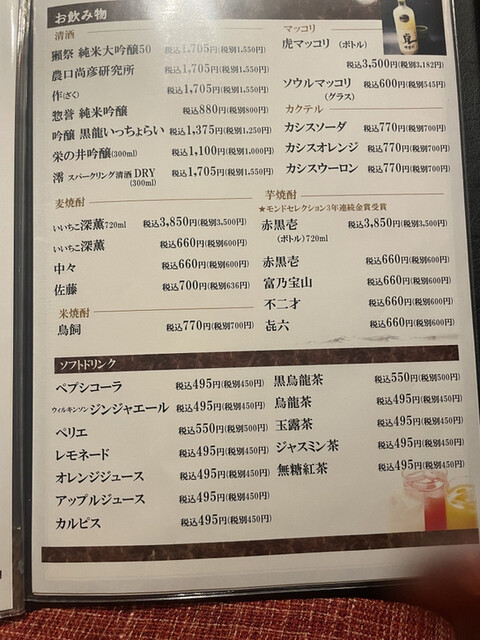 お飲み物
清酒
獺祭 純米大吟醸50 税込1,705円(税別1,550円)
農口尚彦研究所 税込1,705円(税別1,550円)
作(ざく) 税込1,705円(税別1,550円)
惣誉 純米吟醸 税込880円(税別800円)
吟醸 黒龍いっちょらい 税込1,375円(税別1,250円)
栄の井吟醸(300ml) 税込1,100円(税別1,000円)
澪 スパークリング清酒 DRY 税込1,705円(税別1,550円)
(300ml)
麦焼酎
いいちこ深薫720ml 税込3,850円(税別3,500円)
いいちこ深薫 税込660円(税別600円)
中々 税込660円(税別600円)
佐藤 税込700円(税別636円)
米焼酎
鳥飼 税込770円(税別700円)
マッコリ
虎マッコリ (ボトル)
税込3,500円(税別3,182円)
ソウルマッコリ 税込600円(税別545円)
(グラス)
カクテル
カシスソーダ 税込770円(税別700円)
カシスオレンジ 税込770円(税別700円)
カシスウーロン 税込770円(税別700円)
芋焼酎
★モンドセレクション3年連続金賞受賞
赤黒壱 税込3,850円(税別3,500円)
(ボトル)720ml
赤黒壱 税込660円(税別600円)
富乃宝山 税込660円(税別600円)
不二才 税込660円(税別600円)
㐂六 税込660円(税別600円)
ソフトドリンク
ペプシコーラ 税込495円(税別450円)
ウィルキンソンジンジャエール 税込495円(税別450円)
ペリエ 税込550円(税別500円)
レモネード 税込495円(税別450円)
オレンジジュース 税込495円(税別450円)
アップルジュース 税込495円(税別450円)
カルピス 税込495円(税別450円)
黒烏龍茶 税込550円(税別500円)
烏龍茶 税込495円(税別450円)
玉露茶 税込495円(税別450円)
ジャスミン茶 税込495円(税別450円)
無糖紅茶 税込495円(税別450円)